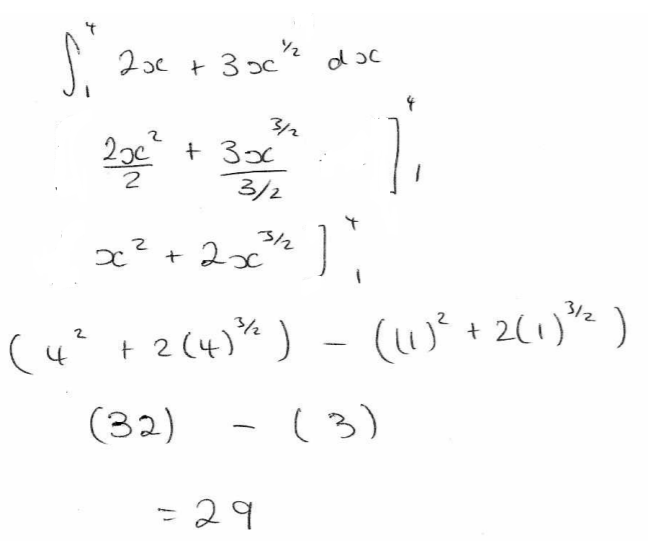 ∫₁⁴ 2x + 3x^{1/2} dx
2x²/2 + 3x^{3/2}/(3/2) ]₁⁴
x² + 2x^{3/2} ]₁⁴
(4² + 2(4)^{3/2}) − ((1)² + 2(1)^{3/2})
(32) − (3)
= 29